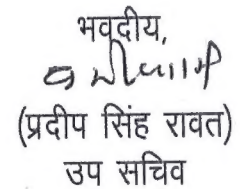 भवदीय,
(प्रदीप सिंह रावत)
उप सचिव